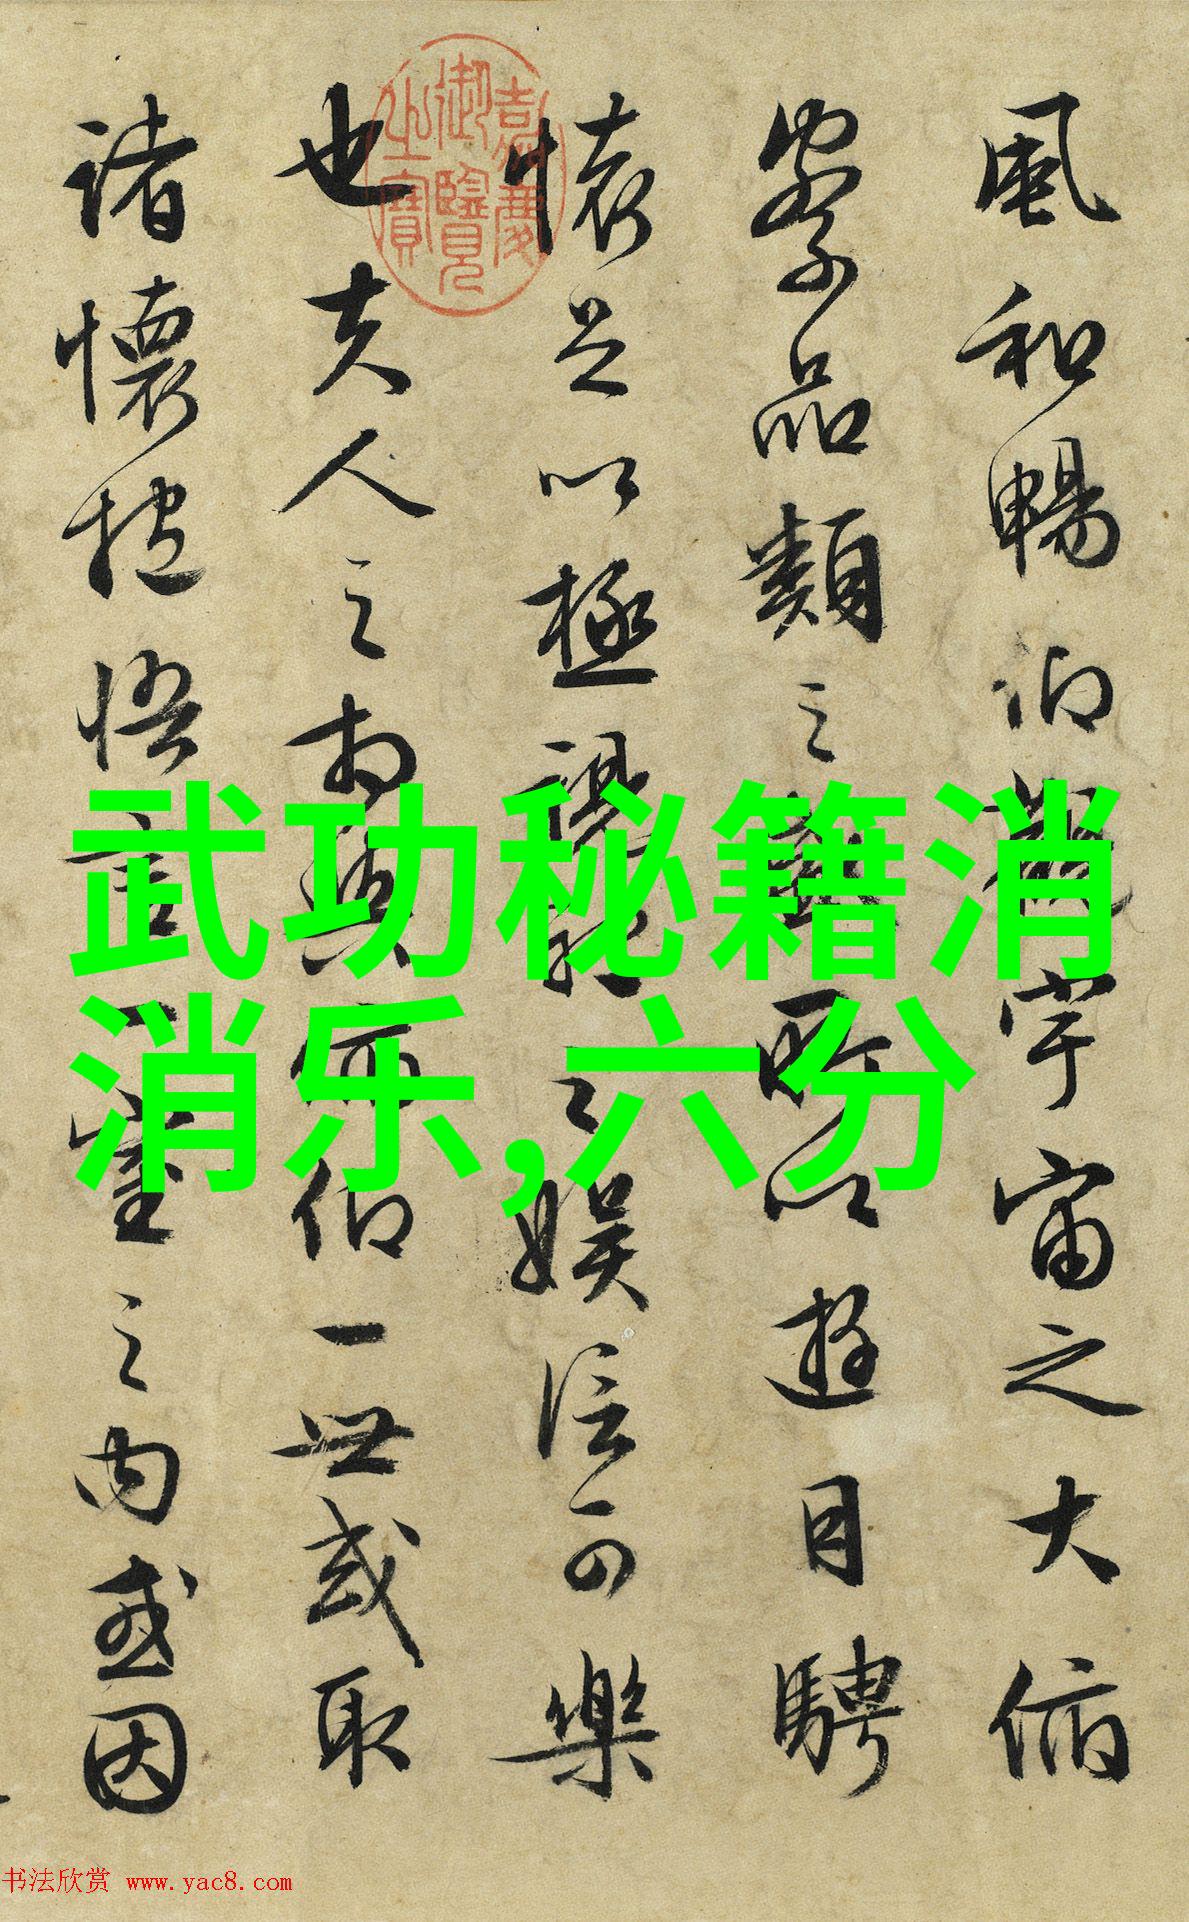 風和暢仰觀宇宙之大俯
察品類之盛所以遊目騁
懷足以極視聽之娛信可樂
也夫人之相與俯仰一世或取
諸懷抱悟言一室之內或因
嘉慶
御覽
之寶
武功秘籍消
消乐,六分
书法欣赏 www.yac8.com